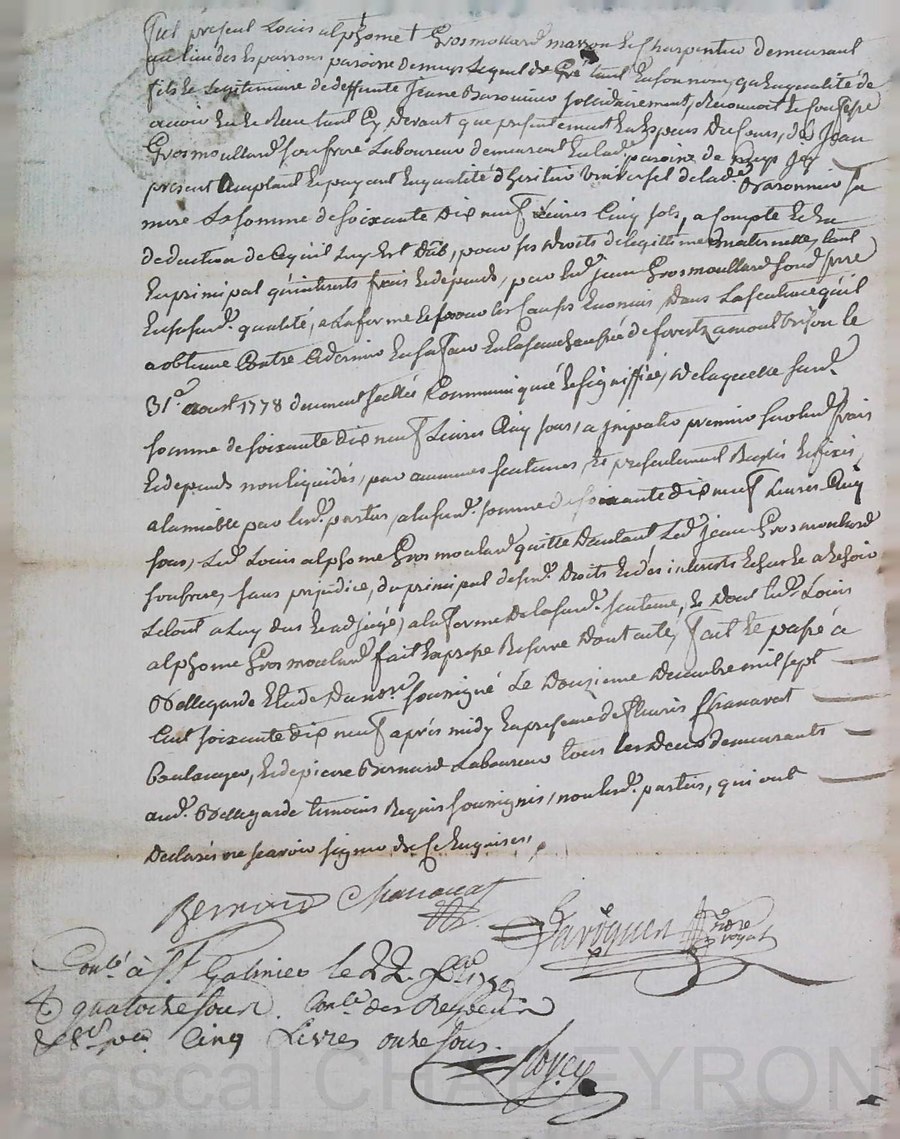 fut présent Louis alphome Grosmollard masson et Charpentier demeurant
au lieu des Esparrons paroisse de lequel de Gré tant en son nom, qu'en qualité de
fils et legitimaire de deffunte jeane Baronnier solidairement, Reconnoit et Confesse
avoir eu et Receu tant Cy devant que presentement en Especes du Cours, de Jean
Grosmoullard son frere Laboureur demeurant en lade paroisse de icy
present acceptant et payant en qualité d'heritier universel de lade Baronnier sa
mere La somme de soixante Dix neuf Livres Cinq sols, a Compte et en
deduction de Ce qu'il luy Est Dub, pour ses droits de legittime maternelle, tant
en principal qu'intérets frais et depends, par led. jean Grosmoullard sond. frere
en susd. qualité, a la forme et pour les Causes enoncés, dans La sentence qu'il
a obtenue Contre Ce dernier en sa faveur en la senechaussée de forest a montbrison le
31e aoust 1778 duement scellée Communiquée et signiffiée, de laquelle surd.
somme de soixante dix neuf Livres Cinq sous, a jmputer premier sur lesd. frais
et depends non liquidés, par aucunes sentences, et presentement Reglés et fixés,
a lamiable par lesd. parties, a la susd. somme de soixante dix neuf Livres Cinq
sous, Led. Louis alphome Grosmoulard quitte d'autant Led. jean Grosmoulard
son frere, sans prejudice, du principal desusd. Droits et des interets
Le tout a luy dus et adjugé, a la forme de la susd. sentence, et Dont led. Louis
alphome Grosmoulard fait Expresse Reserve Dont acte, fait et passé a
Bellegarde Etude du nore soussigné Le Douzieme Decembre mil sept
Cent soixante dix neuf après midy en presence de fleuris Chanavat
boulanger, et de pierre Bernard Laboureur tous les deux demeurants
aud. Bellegarde temoins Requis soussignés, non lesd. parties, qui ont
Declarés ne scavoir signer de Ce Enquises,
Bernard Chanavat
nore royal
Conlé à St Galmier le 22. Xbre 1779
quatorze sous
Cinq Livres onze sous.
Pascal CHAPEYRON